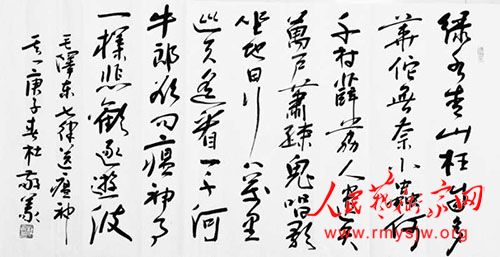 绿水青山枉自多
華佗無奈小蟲何
千村薜荔人遗矢
萬户蕭疎鬼唱歌
坐地日行八萬里
巡天遥看一千河
牛郎欲问瘟神事
一樣悲歡逐逝波
毛澤东七律送瘟神
其一庚子春杜敬義
人民藝術家网
www.rmysjw.org